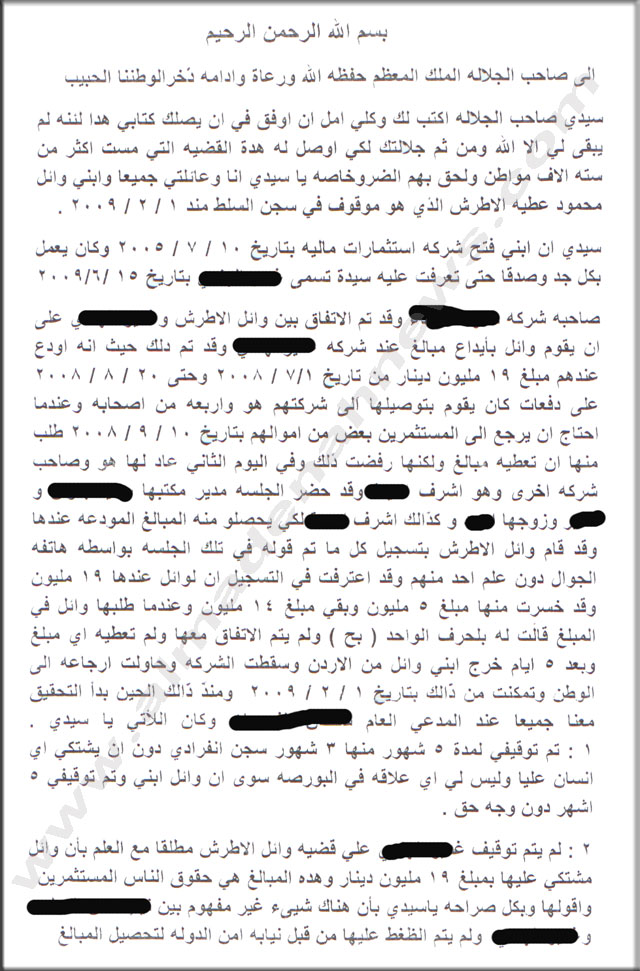 بسم الله الرحمن الرحيم
الى صاحب الجلاله الملك المعظم حفظه الله ورعاة وادامه ذخر الوطننا الحبيب
سيدي صاحب الجلاله اكتب لك وكلي امل ان اوفق في ان يصلك كتابي هدا لننه لم
يبقى لي الا الله ومن ثم جلالتك لكي اوصل له هدة القضيه التي مست اكثر من
سته الاف مواطن ولحق بهم الضرر وخاصه يا سيدي انا وعائلتي جميعا وابني وائل
محمود عطيه الاطرش الذي هو موقوف في سجن السلط مند ١ / ٢ / ٢٠٠٩ .
سيدي ان ابني فتح شركه استثمارات ماليه بتاريخ ١٠ / ٧ / ٢٠٠٥ وكان يعمل
بكل جد وصدقا حتى تعرفت عليه سيدة تسمى بتاريخ ١٥ /٢٠٠٩/٦
صاحبه شركه وقد تم الاتفاق بين وائل الاطرش و على
ان يقوم وائل بأيداع مبالغ عند شركه وقد تم دلك حيث انه اودع
عندهم مبلغ ١٩ مليون دينار من تاريخ ٧/١ / ٢٠٠٨ وحتى ٢٠ / ٨ / ٢٠٠٨
على دفعات كان يقوم بتوصيلها الى شركتهم هو واربعه من اصحابه وعندما
احتاج ان يرجع الى المستثمرين بعض من اموالهم بتاريخ ١٠ / ٩ / ٢٠٠٨ طلب
منها ان تعطيه مبالغ ولكنها رفضت ذلك وفي اليوم الثاني عاد لها هو وصاحب
شركه اخرى وهو اشرف وقد حضر الجلسه مدير مكتبها و
وزوجها و كذالك اشرف لكي يحصلو منه المبالغ المودعه عندها
وقد قام وائل الاطرش بتسجيل كل ما تم قوله في تلك الجلسه بواسطه هاتفه
الجوال دون علم احد منهم وقد اعترفت في التسجيل ان لوائل عندها ١٩ مليون
وقد خسرت منها مبلغ ٥ مليون وبقي مبلغ ١٤ مليون وعندما طلبها وائل في
المبلغ قالت له بلحرف الواحد ( بح ) ولم يتم الاتفاق معها ولم تعطيه اي مبلغ
وبعد ٥ ايام خرج ابني وائل من الاردن وسقطت الشركه وحاولت ارجاعه الى
الوطن وتمكنت من ذالك بتاريخ ١ / ٢ / ٢٠٠٩ ومنذ ذالك الحين بدأ التحقيق
معنا جميعا عند المدعي العام وكان اللأتي يا سيدي .
١ : تم توقيفي لمدة ٥ شهور منها ٣ شهور سجن انفرادي دون ان يشتكي اي
انسان عليا وليس لي اي علاقه في البورصه سوى ان وائل ابني وتم توقيفي ٥
اشهر دون وجه حق .
٢ : لم يتم توقيف علي قضيه وائل الاطرش مطلقا مع العلم بأن وائل
مشتكي عليها بمبلغ ١٩ مليون دينار وهده المبالغ هي حقوق الناس المستثمرين
واقولها وبكل صراحه ياسيدي بأن هناك شييء غير مفهوم بين
و ولم يتم الظغط عليها من قبل نيابه امن الدوله لتحصيل المبالغ
www.almadenahnews.com